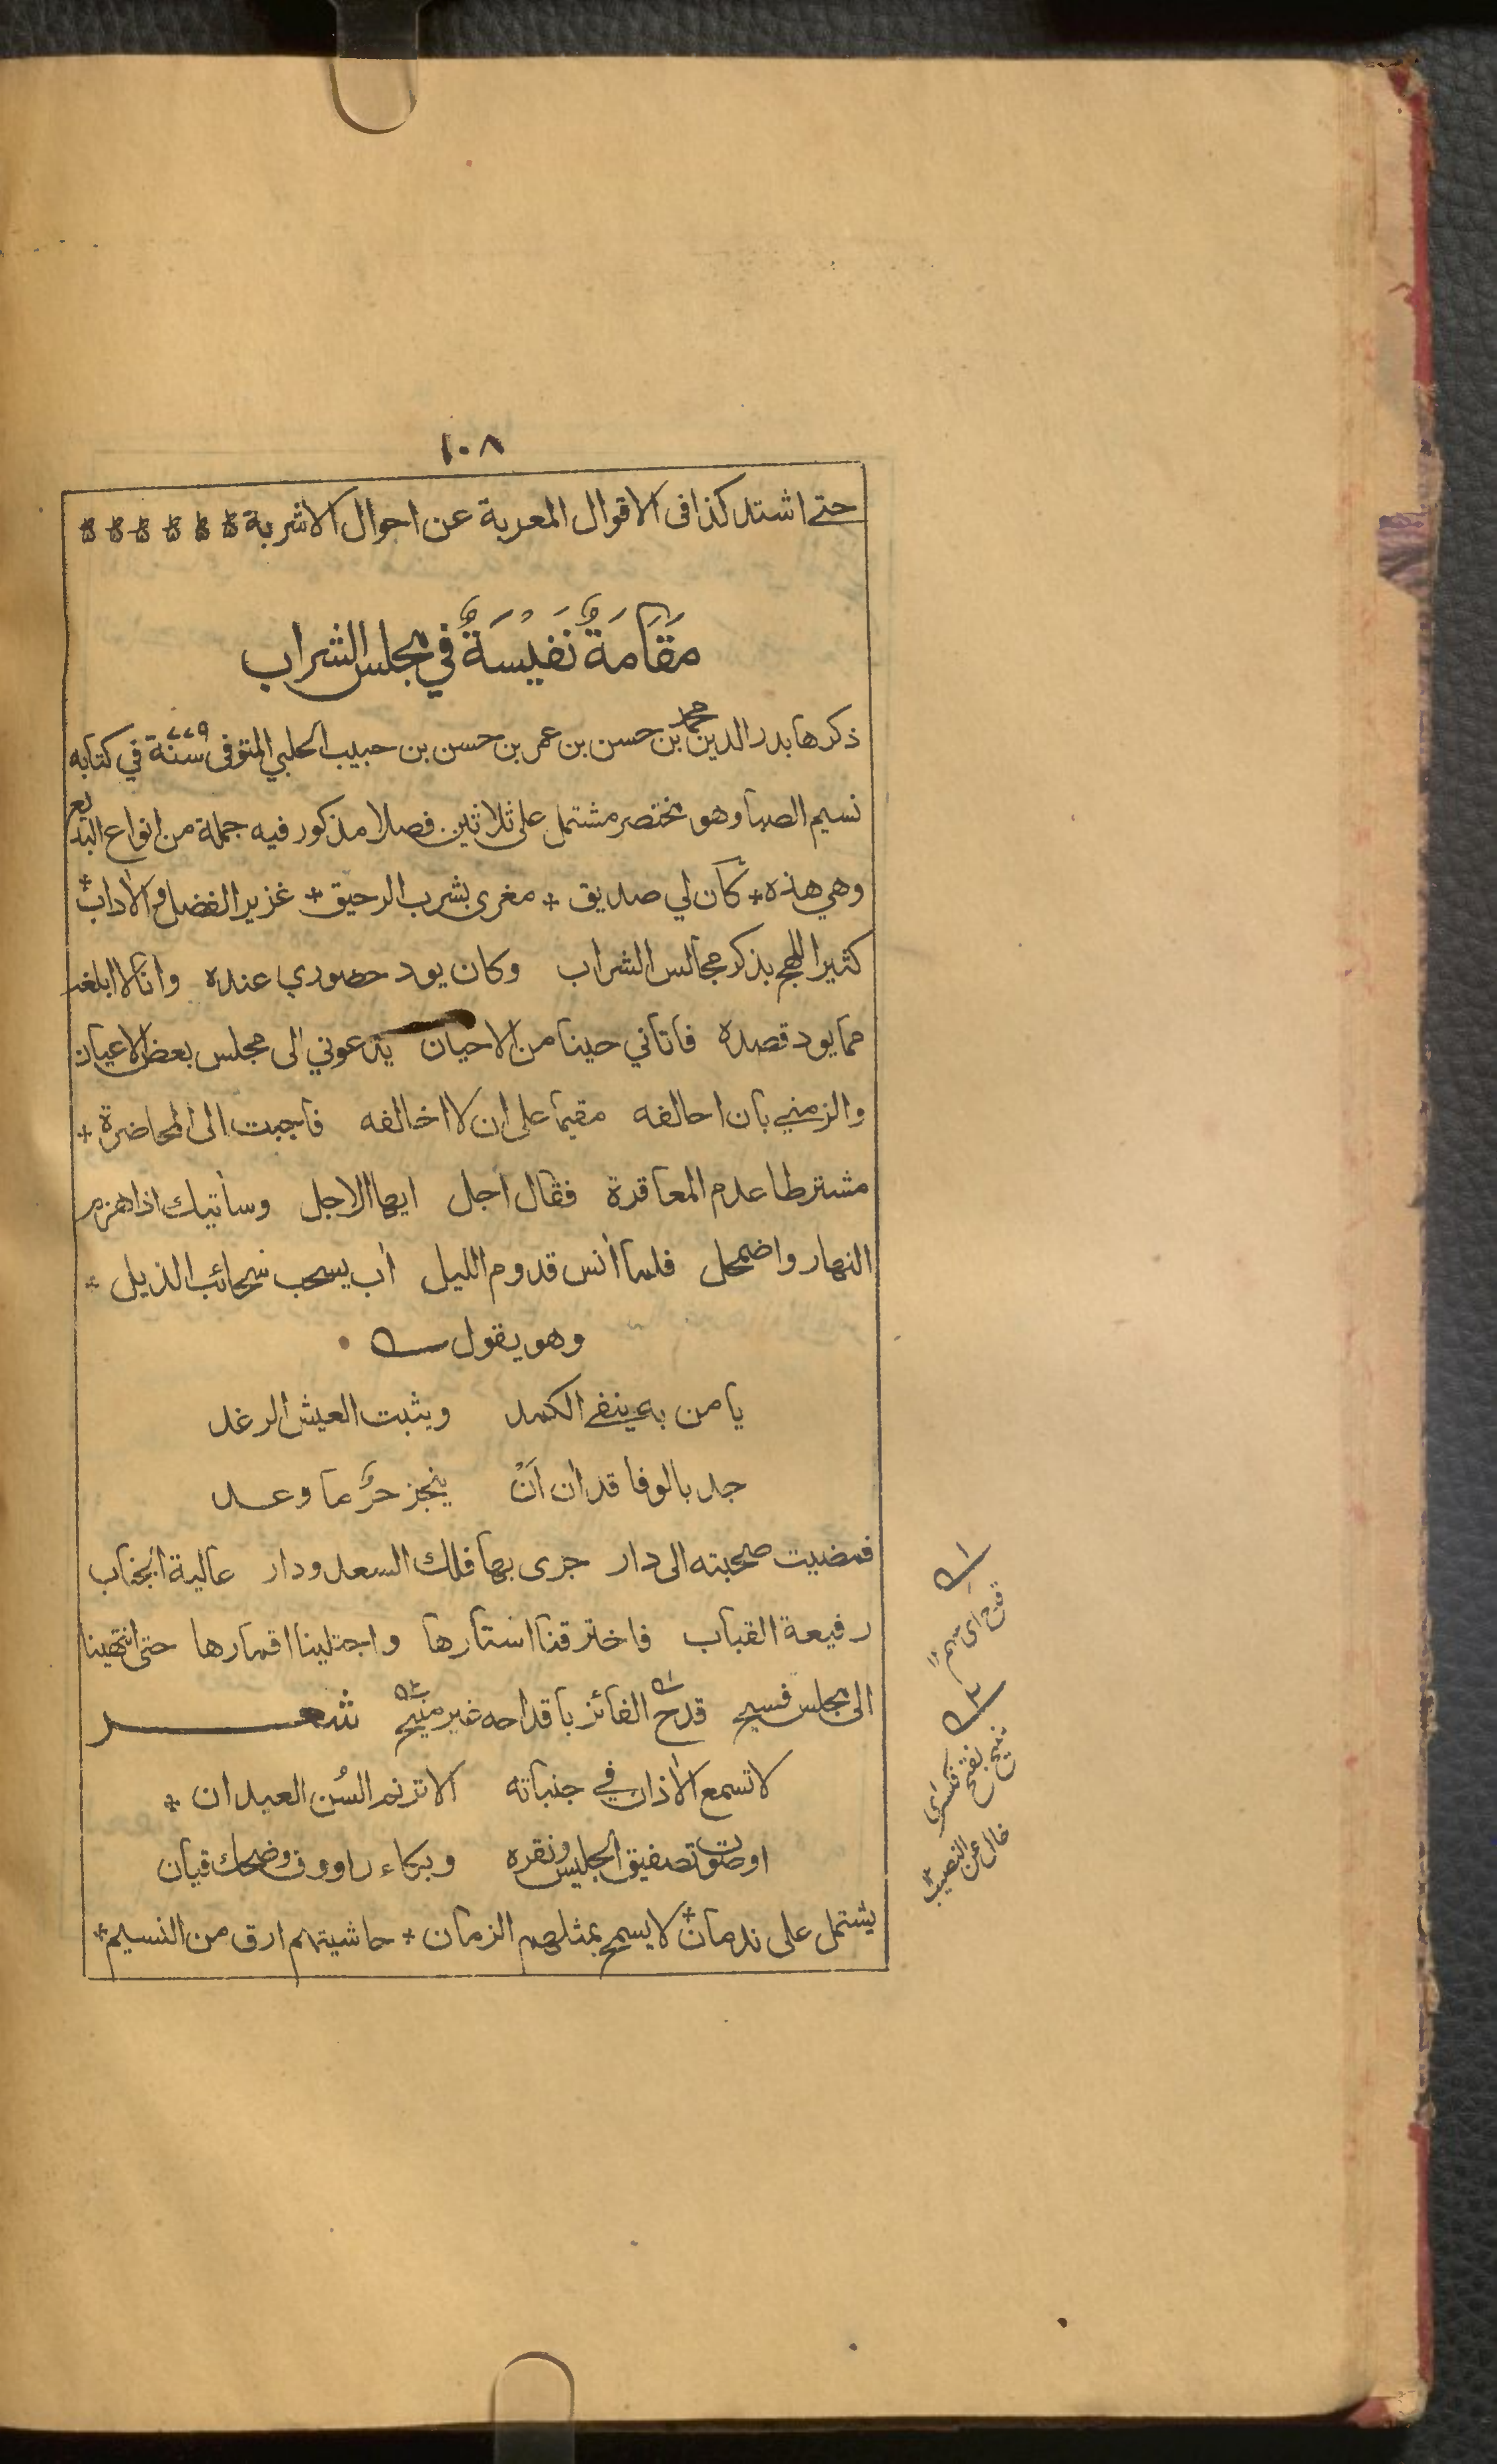 ١٠٨
حتى اشتد كذا فى الاقوال المعربة عن احوال الاشربة
مَقَامَةٌ نَفِيْسَةٌ في مجلس الشراب
ذكرها بدر الدين محمد بن حسن بن عمر بن حسن بن حبيب الحلبي المتوفى سنة ٧٧٩ في كتابه
نسيم الصبا وهو مختصر مشتمل على ثلاثين فصلا مذكور فيه جملة من انواع البديع
وهي هذه * كان لي صديق * مغرى بشرب الرحيق * غزير الفضل والاداب *
كثير اللهج بذكر مجالس الشراب وكان يود حضوري عنده وانا لا ابلغه
مما يود قصده فاتاني حينا من الاحيان يدعوني الى مجلس بعض الاعيان
والزمني بان احالفه مقيما على ان لا اخالفه فاجبت الى المحاضرة *
مشترطا عدم المعاقدة فقال اجل ايها الاجل وسأتيك اذا هزم
النهار واضمحل فلما أنس قدوم الليل أب يسحب سحائب الذيل *
وهو يقول
يا من به ينفى الكمد ويثبت العيش الرغد
جد بالوفا قد ان اَنْ ينجز حُرٌّ ما وعد
فمضيت صحبته الى دار جرى بها فلك السعد ودار عالية الجناب
رفيعة القباب فاخترقنا استارها واجتلينا اقمارها حتى انتهينا
الى مجلس فسيح قدح١ الفائز باقداحه غير منيح٢ شعر
لا تسمع الاذان في جنباته الا ترنم السُن العيدان *
او صوت تصفيق الجليس ونقره وبكاء راووق وضحك قيان
يشتمل على ندمان * لا يسمح بمثلهم الزمان * حاشيتهم ارق من النسيم *
١
قدح اى سهم ١٢
٢
منيح بفتح
خال عن النصيب ١٢